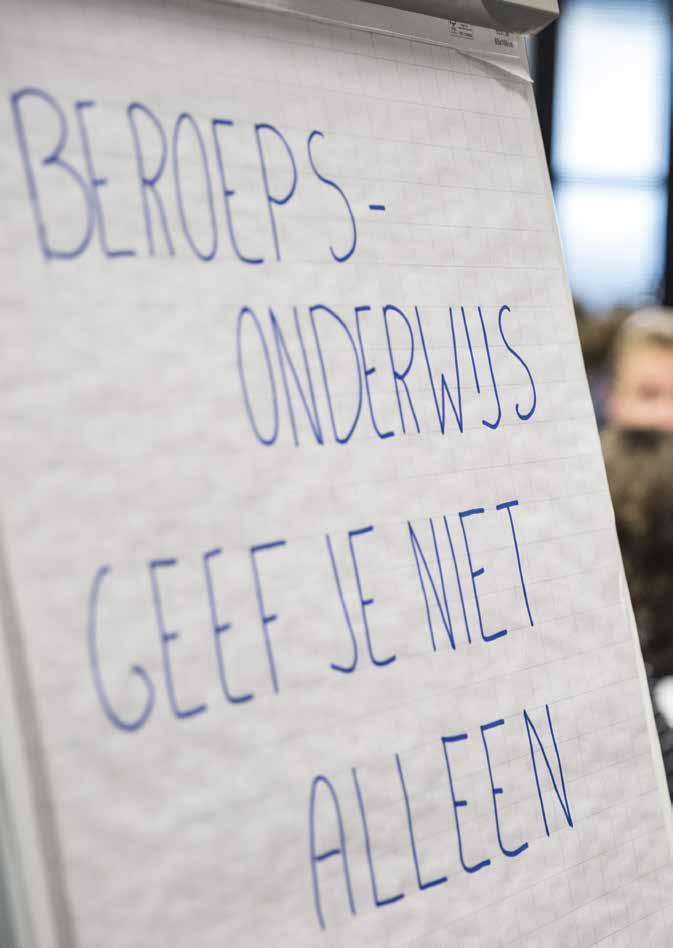 BEROEPS-
ONDERWIJS
GEEF JE NIET
ALLEEN